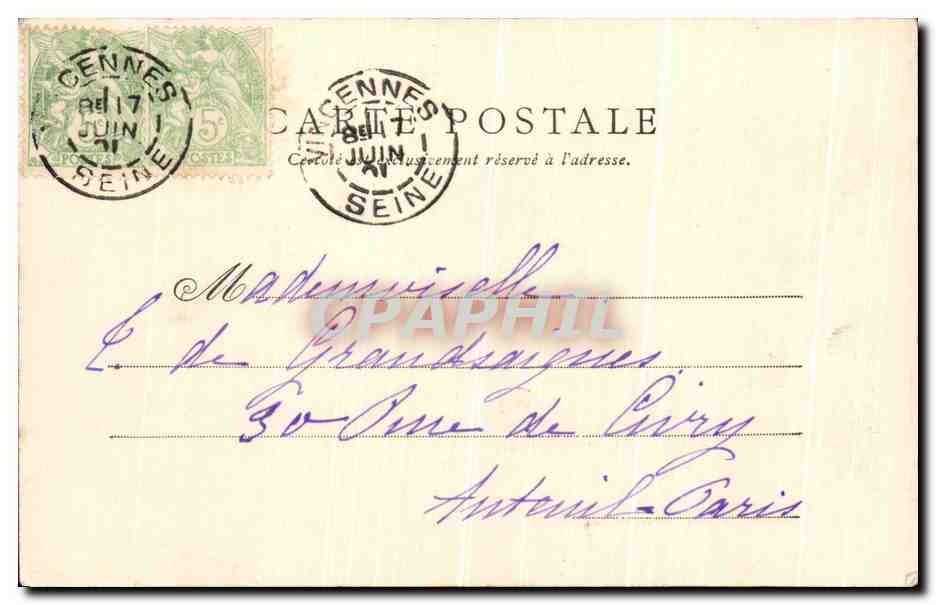 CENNES
8E 17
JUIN
01
SEINE
5c
5c
POSTES
POSTES
VINCENNES
8E 17
JUIN
01
SEINE
CARTE POSTALE
Ce côté est exclusivement réservé à l'adresse.
Mademoiselle
de Grandsaignes
30 Rue de Civry
Auteuil-Paris
CPAPHIL